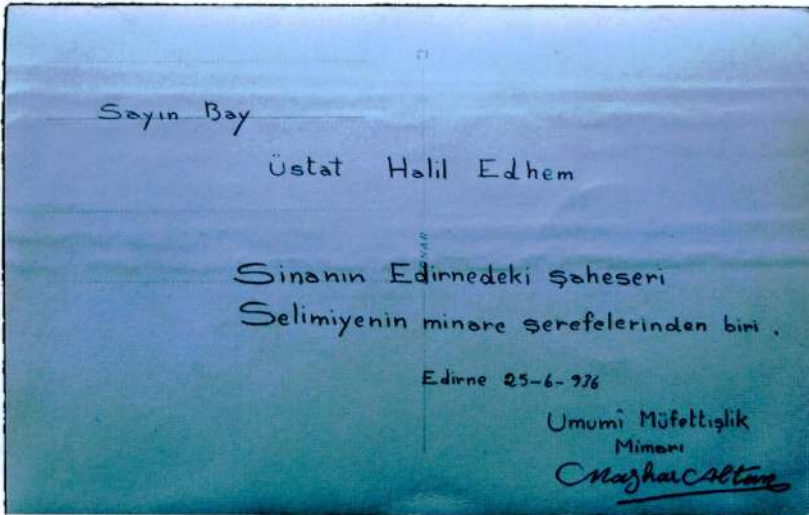 Sayın Bay
Üstat Halil Edhem
Sinanın Edirnedeki şaheseri
Selimiyenin minare şerefelerinden biri .
Edirne 25-6-936
Umumî Müfettişlik
Mimarı
Mazhar Altan